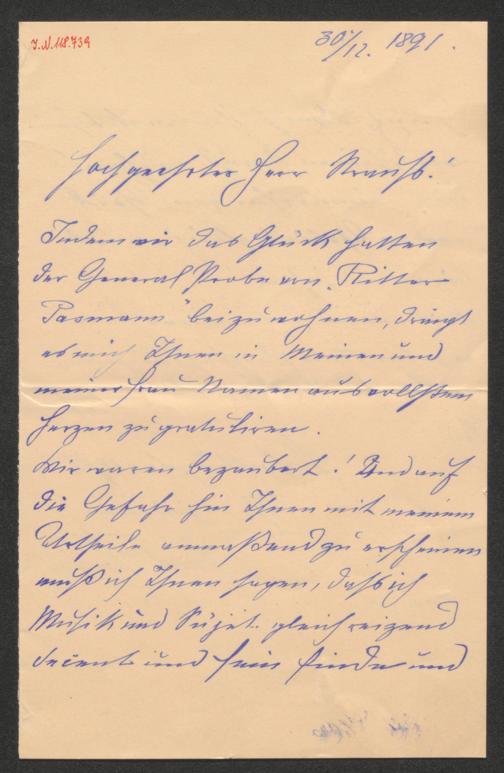 I.N. 118.739
30/12. 1891.
Hochgeehrter Herr Strauss!
Indem wir das Glück hatten
der General Probe von „Ritter
Pasmann" beizuwohnen, drängt
es mich Ihnen in Meinen und
meiner Frau Namen aus vollstem
Herzen zu gratuliren.
Wir waren bezaubert! Und auf
die Gefahr hin Ihnen mit meinem
Urtheile anmaßend zu erscheinen
muß ich Ihnen sagen, dass ich
Musik und Sujet gleich reizend
decent und fein finde und